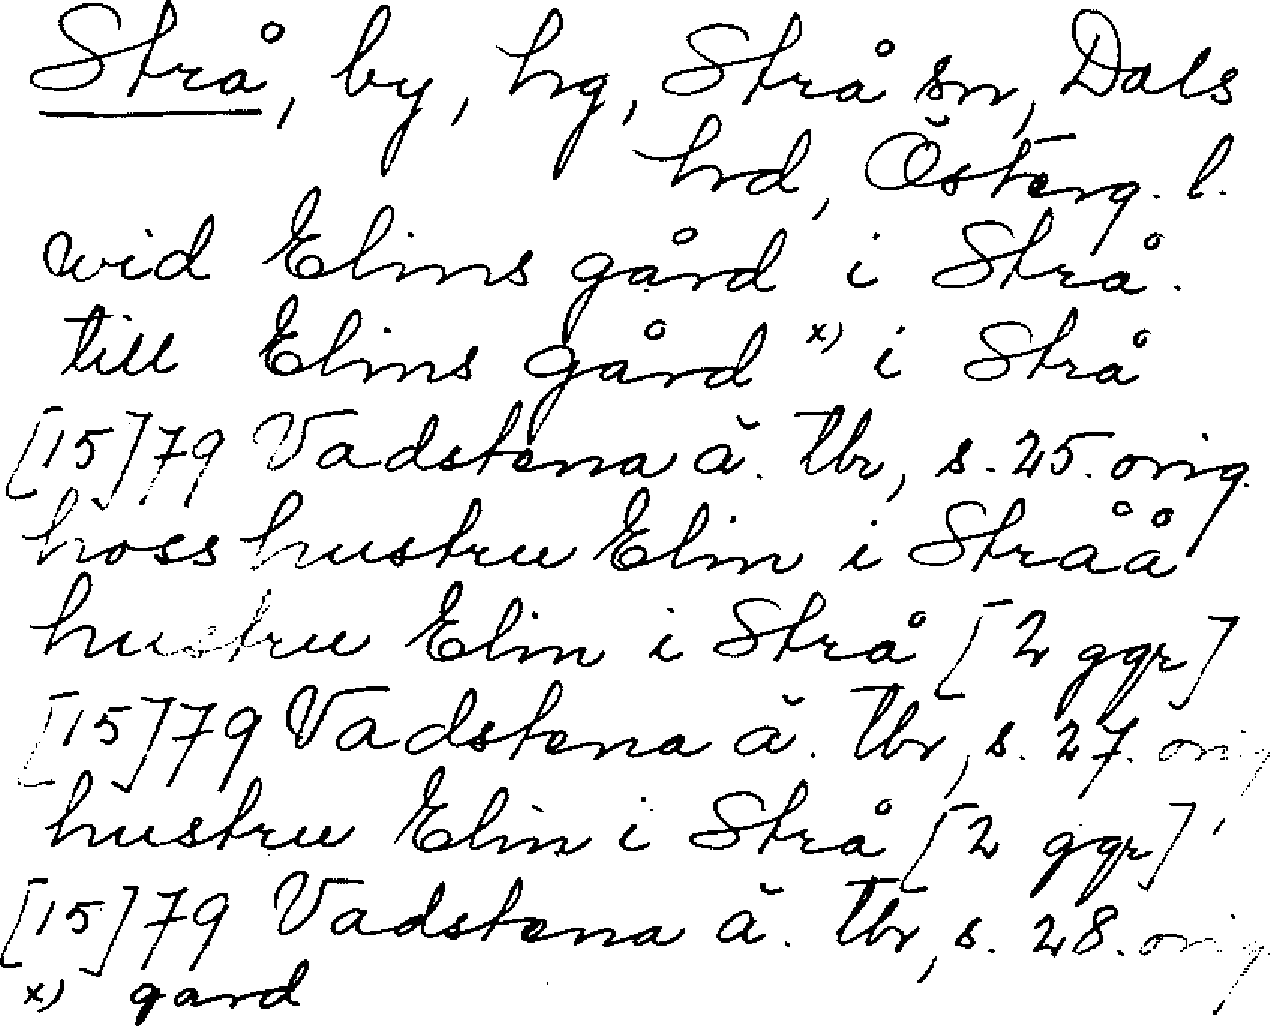 Strå, by, hg, Strå sn, Dals
hrd, Österg. l.
wid Elins gård i Strå.
till Elins gård x) i Strå
[15]79 Vadstena ä. Tbr, s. 25. orig.
hoss hustru Elin i Stråå
hustru Elin i Strå [2 ggr]
[15]79 Vadstena ä. Tbr, s. 27. orig.
hustru Elin i Strå [2 ggr],
[15]79 Vadstena ä. Tbr, s. 28. orig.
x) gard